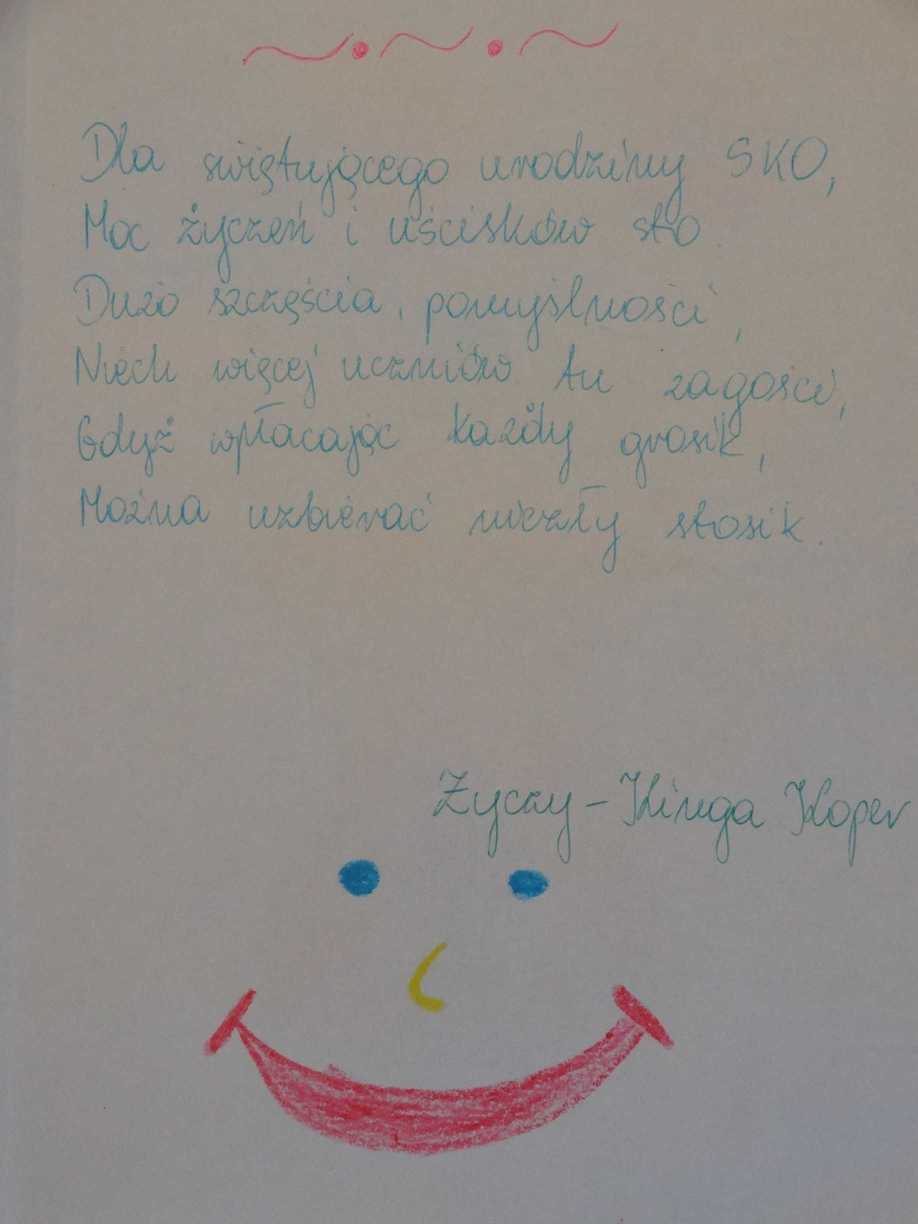 Dla świętującego urodziny SKO,
Moc życzeń i uścisków sto.
Dużo szczęścia, pomyślności,
Niech więcej uczniów tu zagości,
Gdyż wpłacając każdy grosik,
Można uzbierać niezły stosik.
Życzy - Kinga Koper